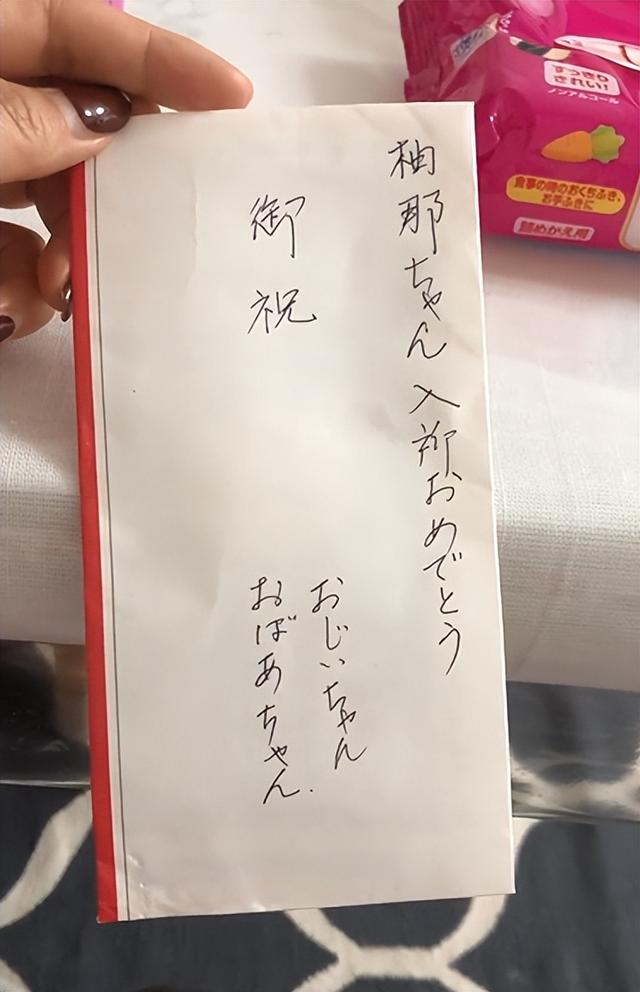 柚那ちゃん 入所おめでとう
御祝
おじいちゃん
おばあちゃん.
すっきり
きれい!!
ノンアルコール
食事の時のおくちふき、
お手ふきに
詰めかえ用